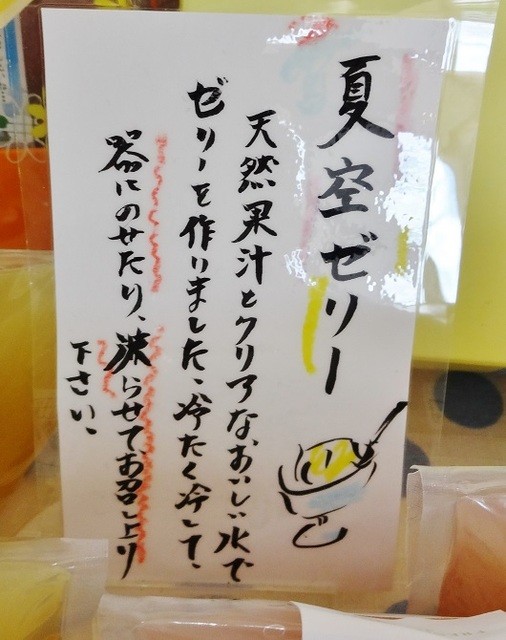 夏空ゼリー
天然果汁とクリアなおいしい水で
ゼリーを作りました、冷たく冷して、
器にのせたり、凍らせてお召し上り
下さい、